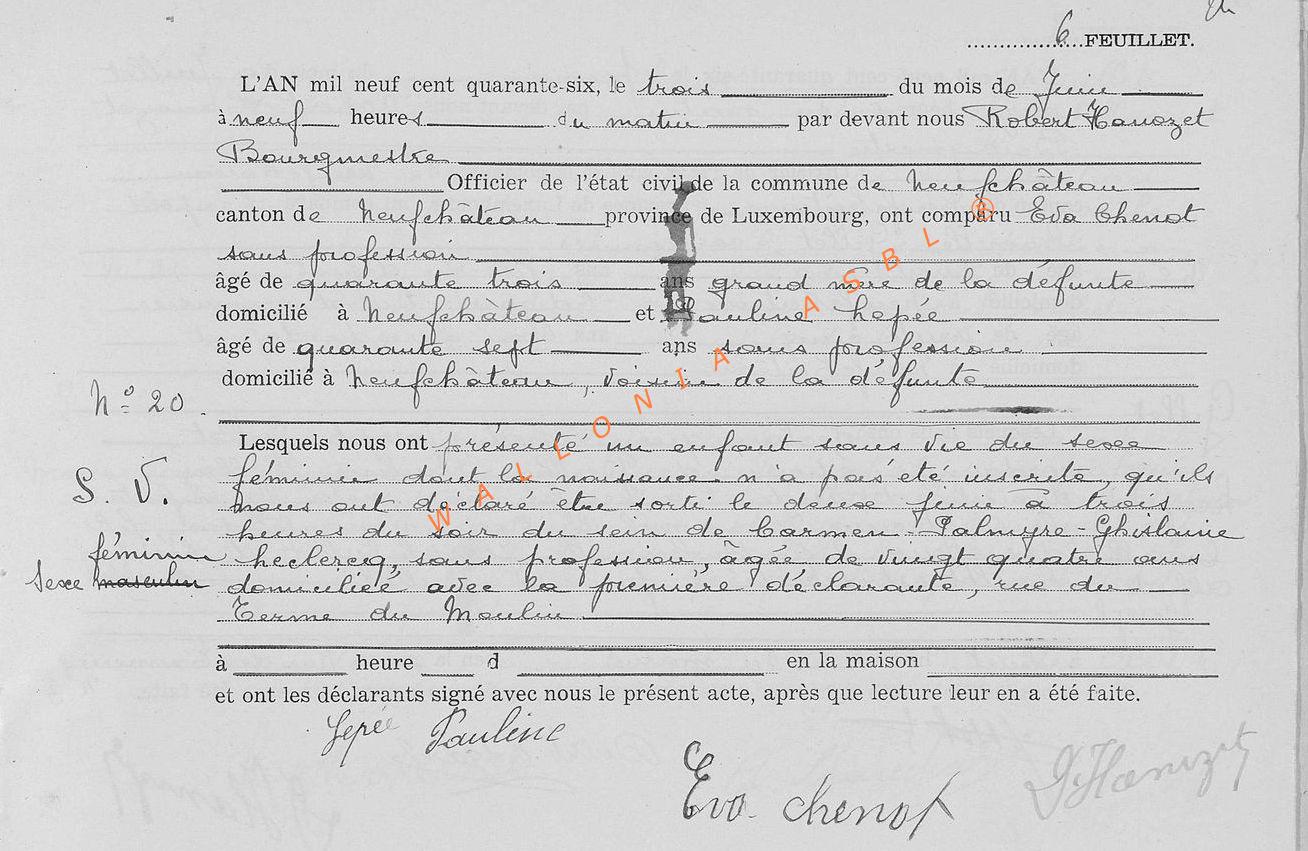 6 FEUILLET.
L'AN mil neuf cent quarante-six, le trois du mois de Juin
à neuf heures du matin par devant nous Robert Hanozet
Bourgmestre
Officier de l'état civil de la commune de Neufchâteau
canton de Neufchâteau province de Luxembourg, ont comparu Eva Chenot
sans profession
âgé de quarante trois ans grand mère de la défunte
domicilié à Neufchâteau et Pauline Lepée
âgé de quarante sept ans sans profession
domicilié à Neufchâteau, voisine de la défunte
N° 20.
Lesquels nous ont présenté un enfant sans vie du sexe
S. V. féminin dont la naissance n'a pas été inscrite, qu'ils
nous ont déclaré être sorti le deux Juin à trois
heures du soir du sein de Carmen-Palmyre-Ghislaine
féminin Leclercq, sans profession, âgée de vingt quatre ans
Sexe masculin domiciliée avec la première déclarante, rue du
Terme du Moulin
à heure d en la maison
et ont les déclarants signé avec nous le présent acte, après que lecture leur en a été faite.
Lepée Pauline
Eva Chenot
R Hanozet
WALLONIA ASBL ®